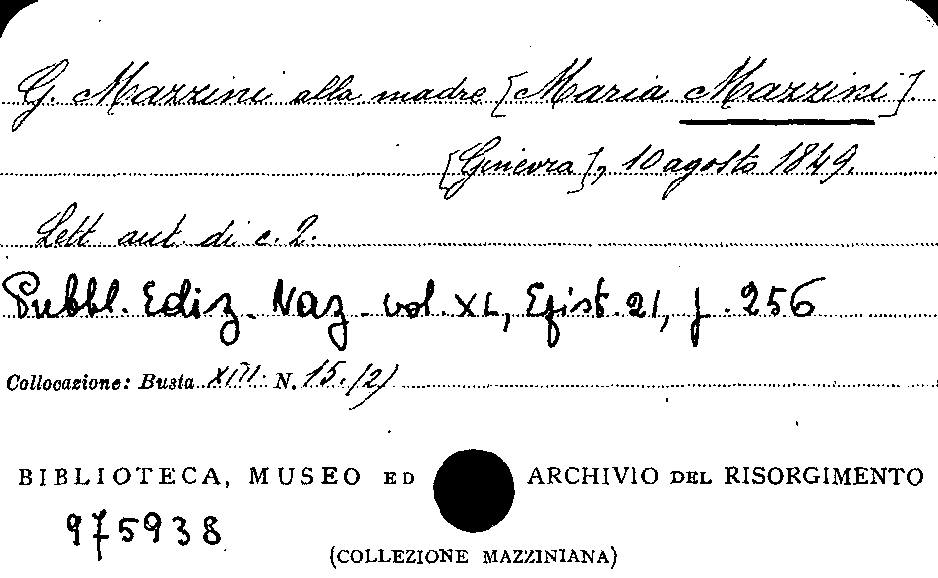 G. Mazzini alla madre [Maria Mazzini].
[Ginevra], 10 agosto 1849.
Lett. aut. di c. 2.
Pubbl. Ediz. Naz. vol. XL, Epist. 21, p. 256
Collocazione: Busta XIII N. 15. (2)
BIBLIOTECA, MUSEO ED ARCHIVIO DEL RISORGIMENTO
975938
(COLLEZIONE MAZZINIANA)